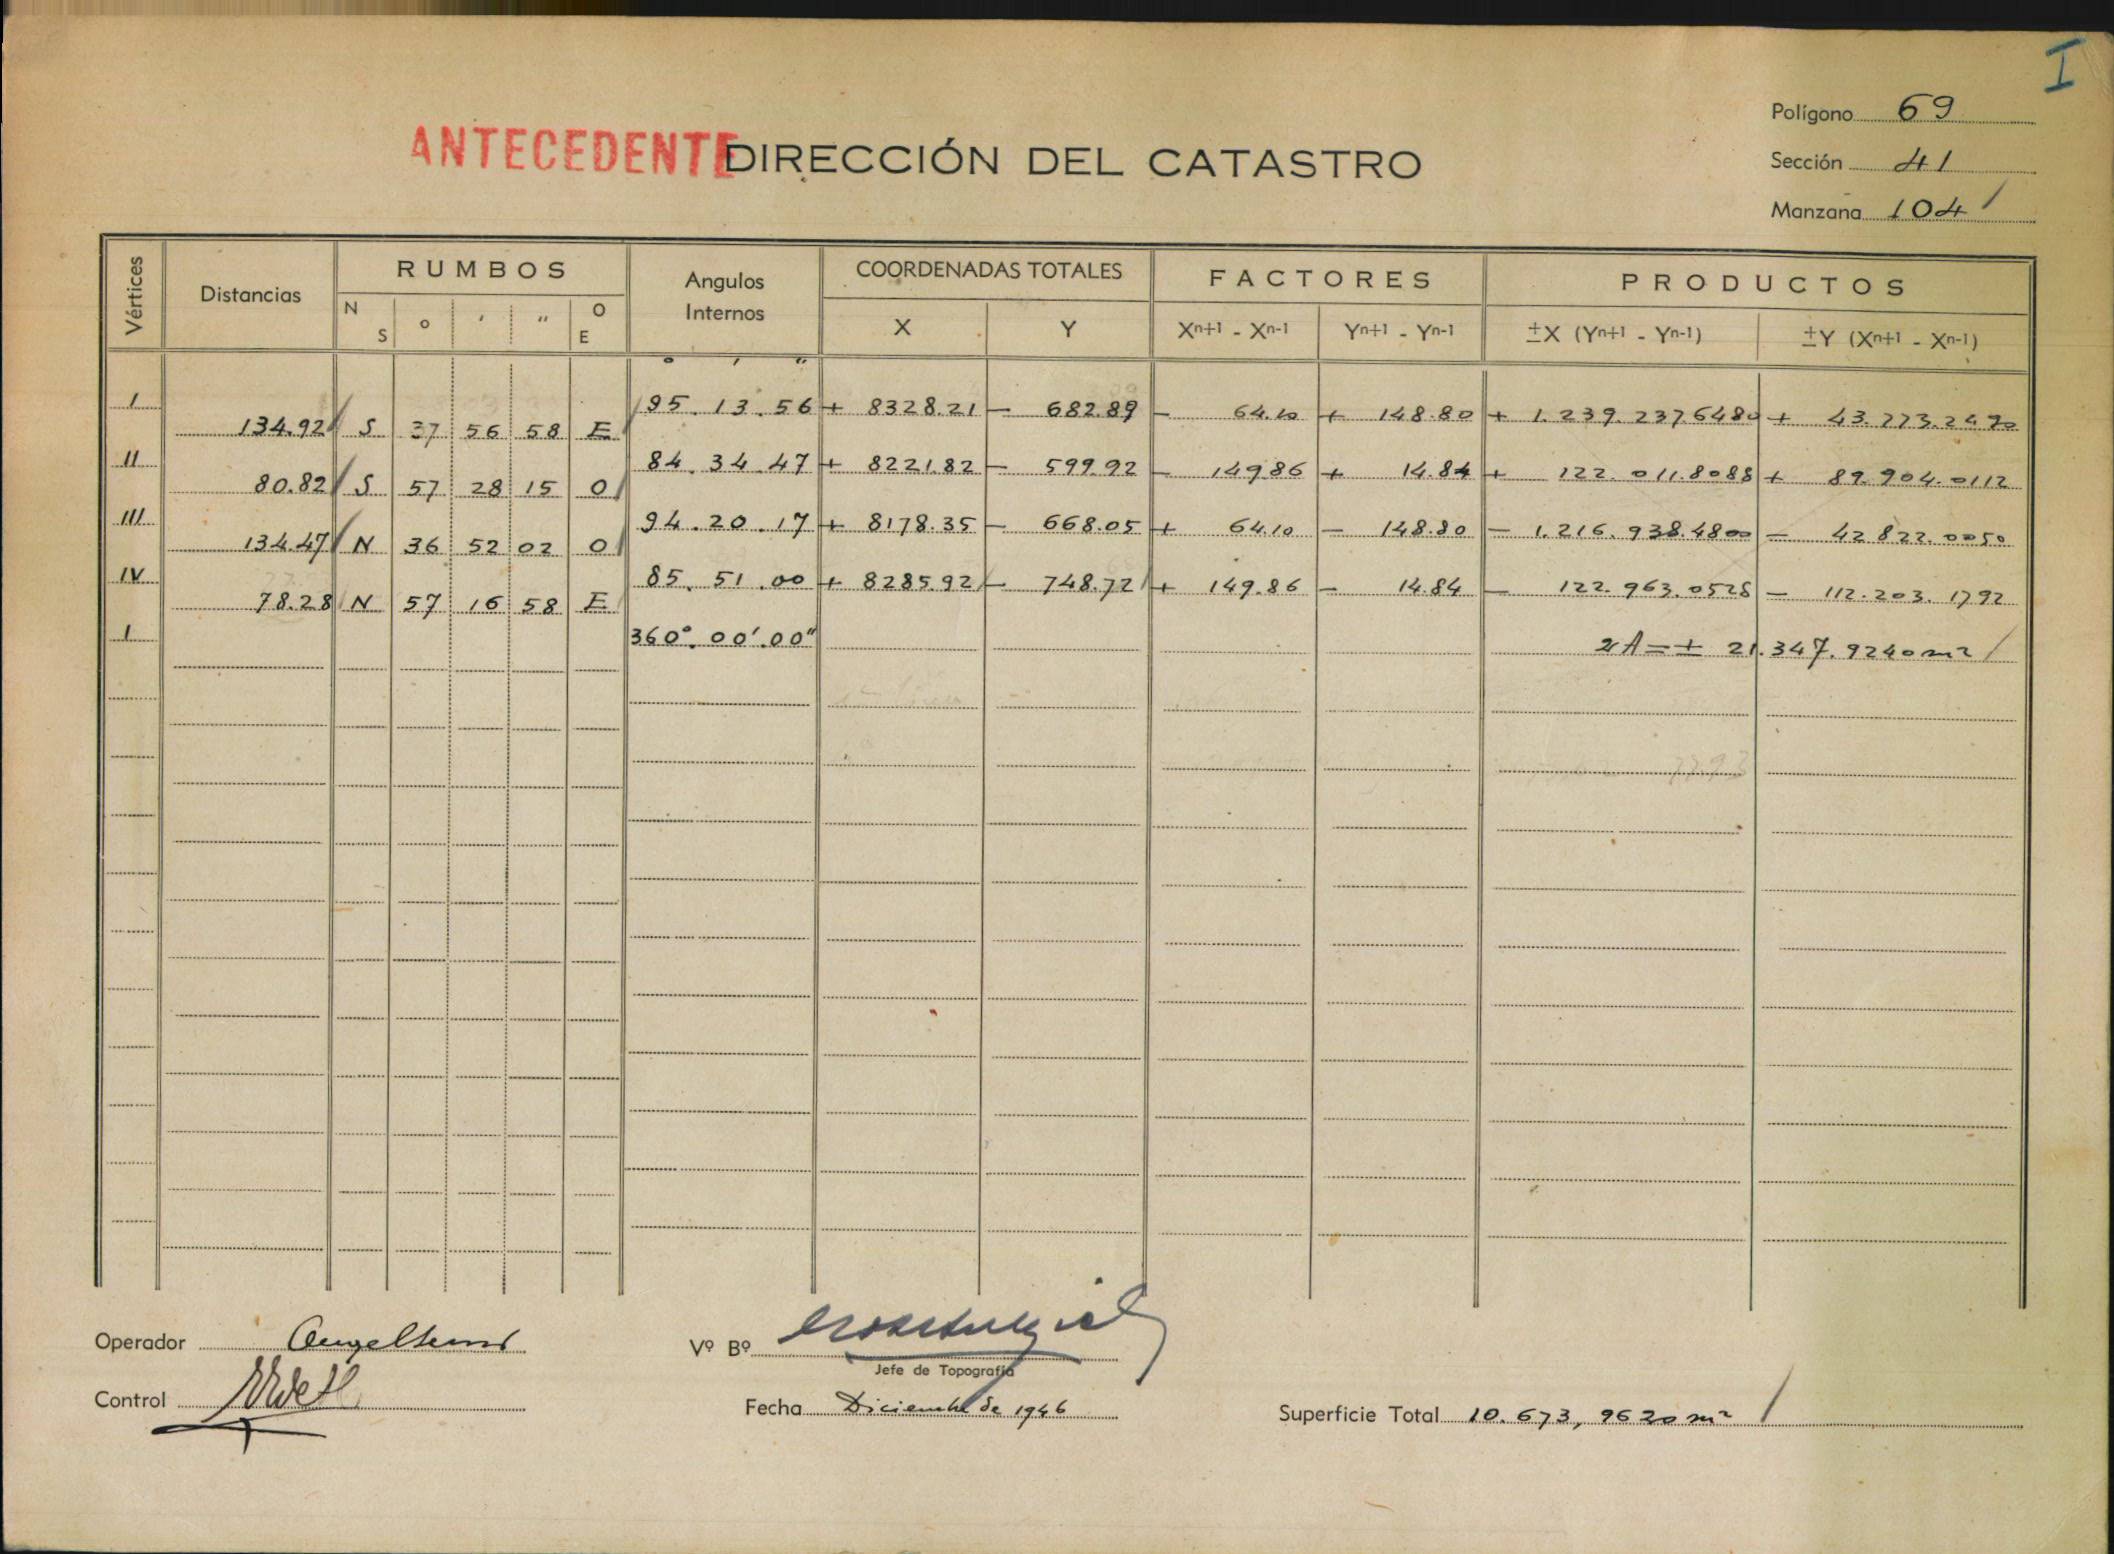 I
Polígono 69
ANTECEDENTE DIRECCIÓN DEL CATASTRO
Sección 41
Manzana 104
Vértices Distancias RUMBOS Angulos Internos COORDENADAS TOTALES FACTORES PRODUCTOS
N S ° ' " O E X Y Xn+1 - Xn-1 Yn+1 - Yn-1 ±X (Yn+1 - Yn-1) ±Y (Xn+1 - Xn-1)
° ' "
I 95.13.56 + 8328.21 — 682.89 — 64.10 + 148.80 + 1.239.237.6480 + 43.773.2490
134.92 S 37 56 58 E
II 84.34.47 + 8221.82 — 599.92 — 149.86 + 14.84 + 122.011.8088 + 89.904.0112
80.82 S 57 28 15 O
III 94.20.17 + 8178.35 — 668.05 + 64.10 — 148.80 — 1.216.938.4800 — 42.822.0050
134.47 N 36 52 02 O
IV 85.51.00 + 8285.92 — 748.72 + 149.86 — 14.84 — 122.963.0528 — 112.203.1792
78.28 N 57 16 58 E
I 360°.00'.00" 2A = ± 21.347.9240 m²
Operador
Vº Bº
Jefe de Topografía
Control
Fecha Diciembre de 1946
Superficie Total 10.673,9620 m²